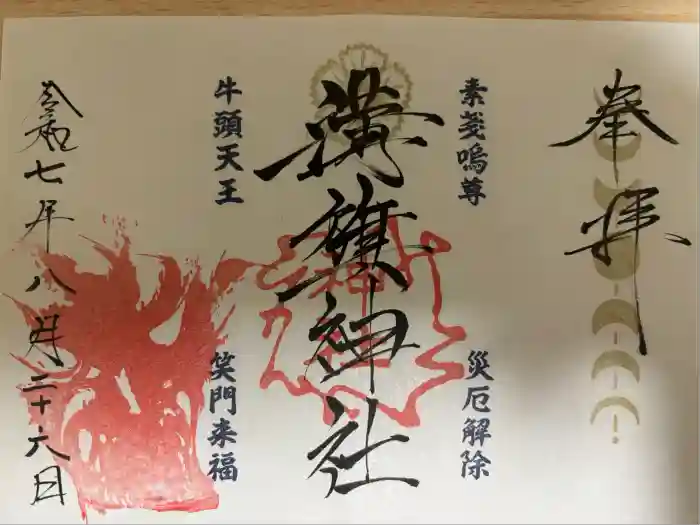 奉拝
素戔嗚尊
災厄解除
溝旗神社
牛頭天王
笑門来福
令和七年八月二十六日